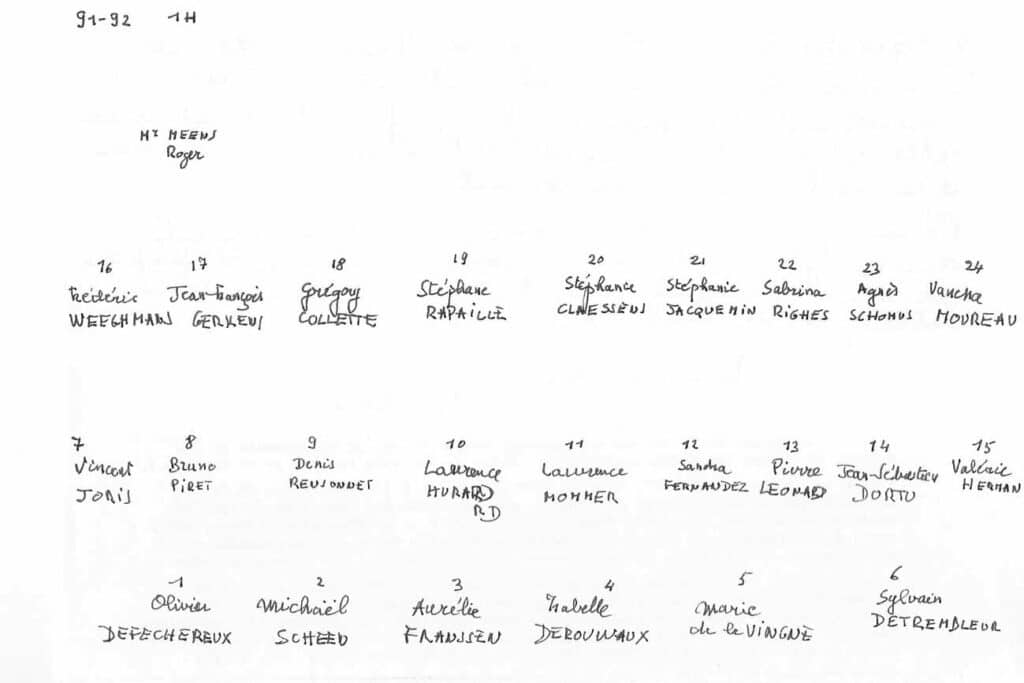 91-92 1H
Mr HEENS
Roger
16 17 18 19 20 21 22 23 24
Frédéric Jean-François Grégory Stéphane Stéphanie Stéphanie Sabrina Agnès
WEEGHMANS GERKENS COLLETTE RAPAILLE CLAESSENS JACQUEMIN RIGHES SCHOMUS MOUREAU
7 8 9 10 11 12 13 14 15
Vincent Bruno Denis Laurence Laurence Sandra Pierre Jean-Sébastien Valérie
JORIS PIRET RENSONNET HURARD MOMMER FERNANDEZ LEONARD DORTU HERMAN
RD
1 2 3 4 5 6
Olivier Michaël Aurélie Isabelle Marie Sylvain
DEFECHEREUX SCHEEN FRANSSEN DEROUWAUX de la VINGNE DETREMBLEUR